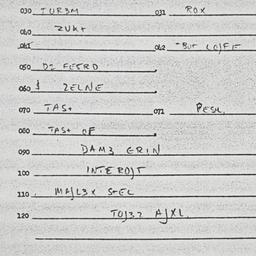 030 TURBM 031 ROX
040 ZUKT
041 042 -BUT LOJFE
050 DE FETRO
060 $ ZELNE
070 TAST 071 PESU.
080 TAST OF
090 DAM3 ERIN
100 INTEROJT
110 MAJL3X STEL
120 TOJ32 AJXL.